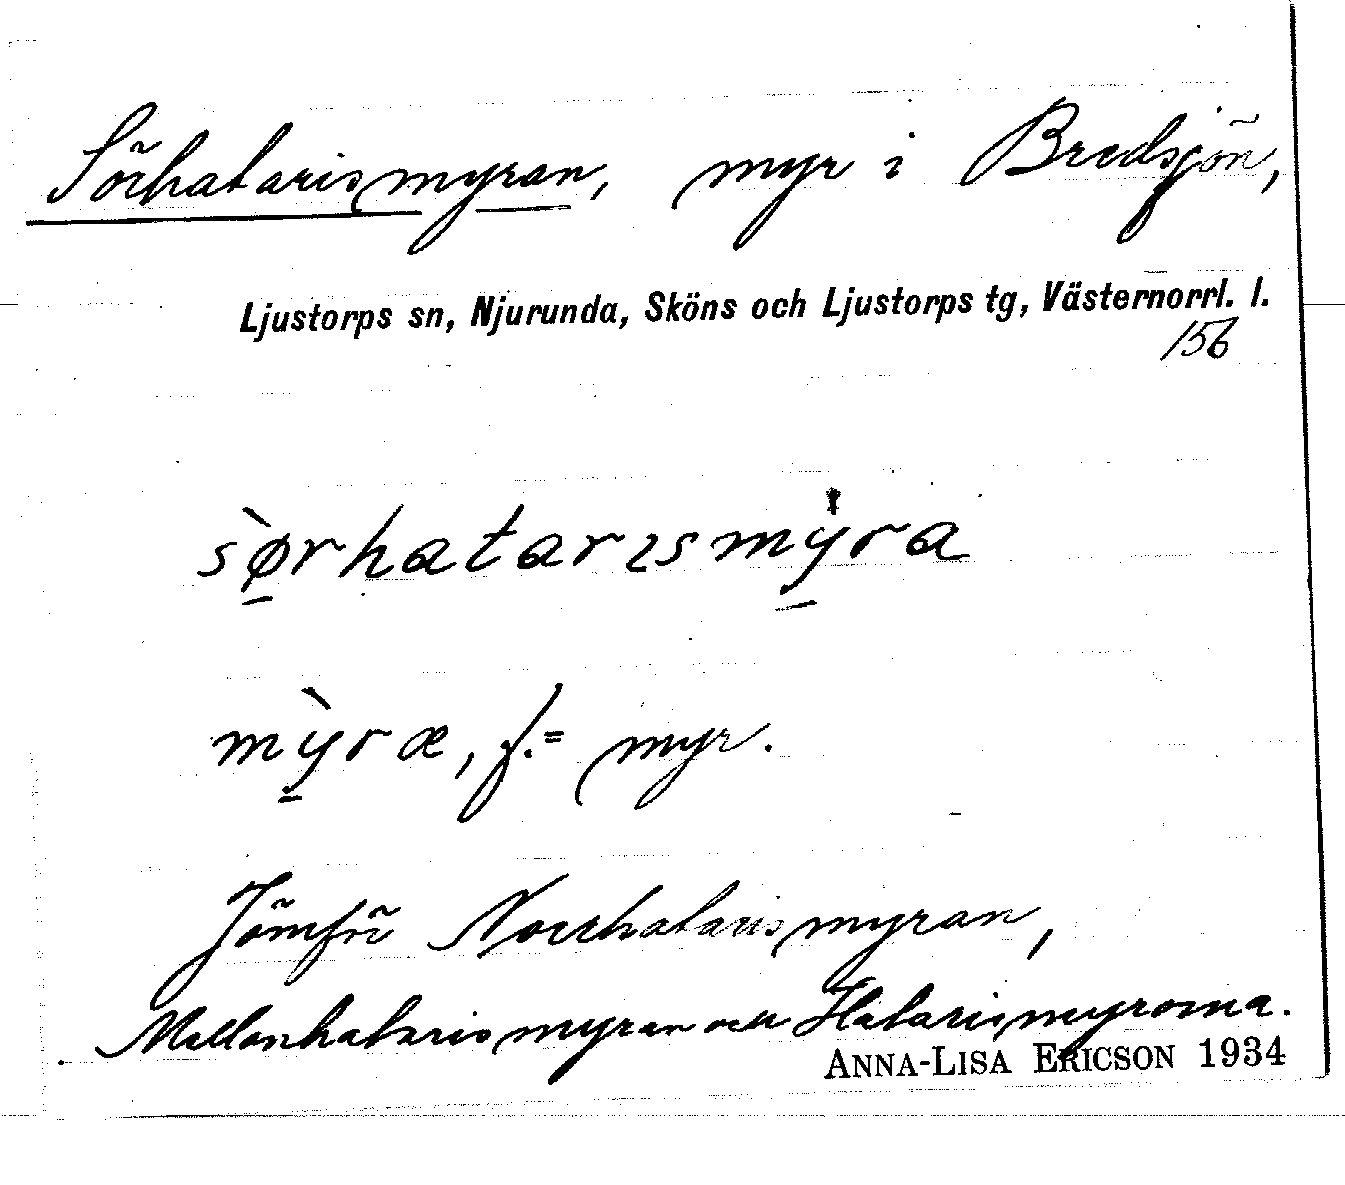 Sörhatarismyran, myr i Bredsjön,
Ljustorps sn, Njurunda, Sköns och Ljustorps tg, Västernorrl. l.
156
sø̀rhatarısmỳra
mỳræ, f. = myr.
Jämför Norrhatarismyran,
Mellanhatarismyran och Hatarismyrorna.
ANNA-LISA ERICSON 1934